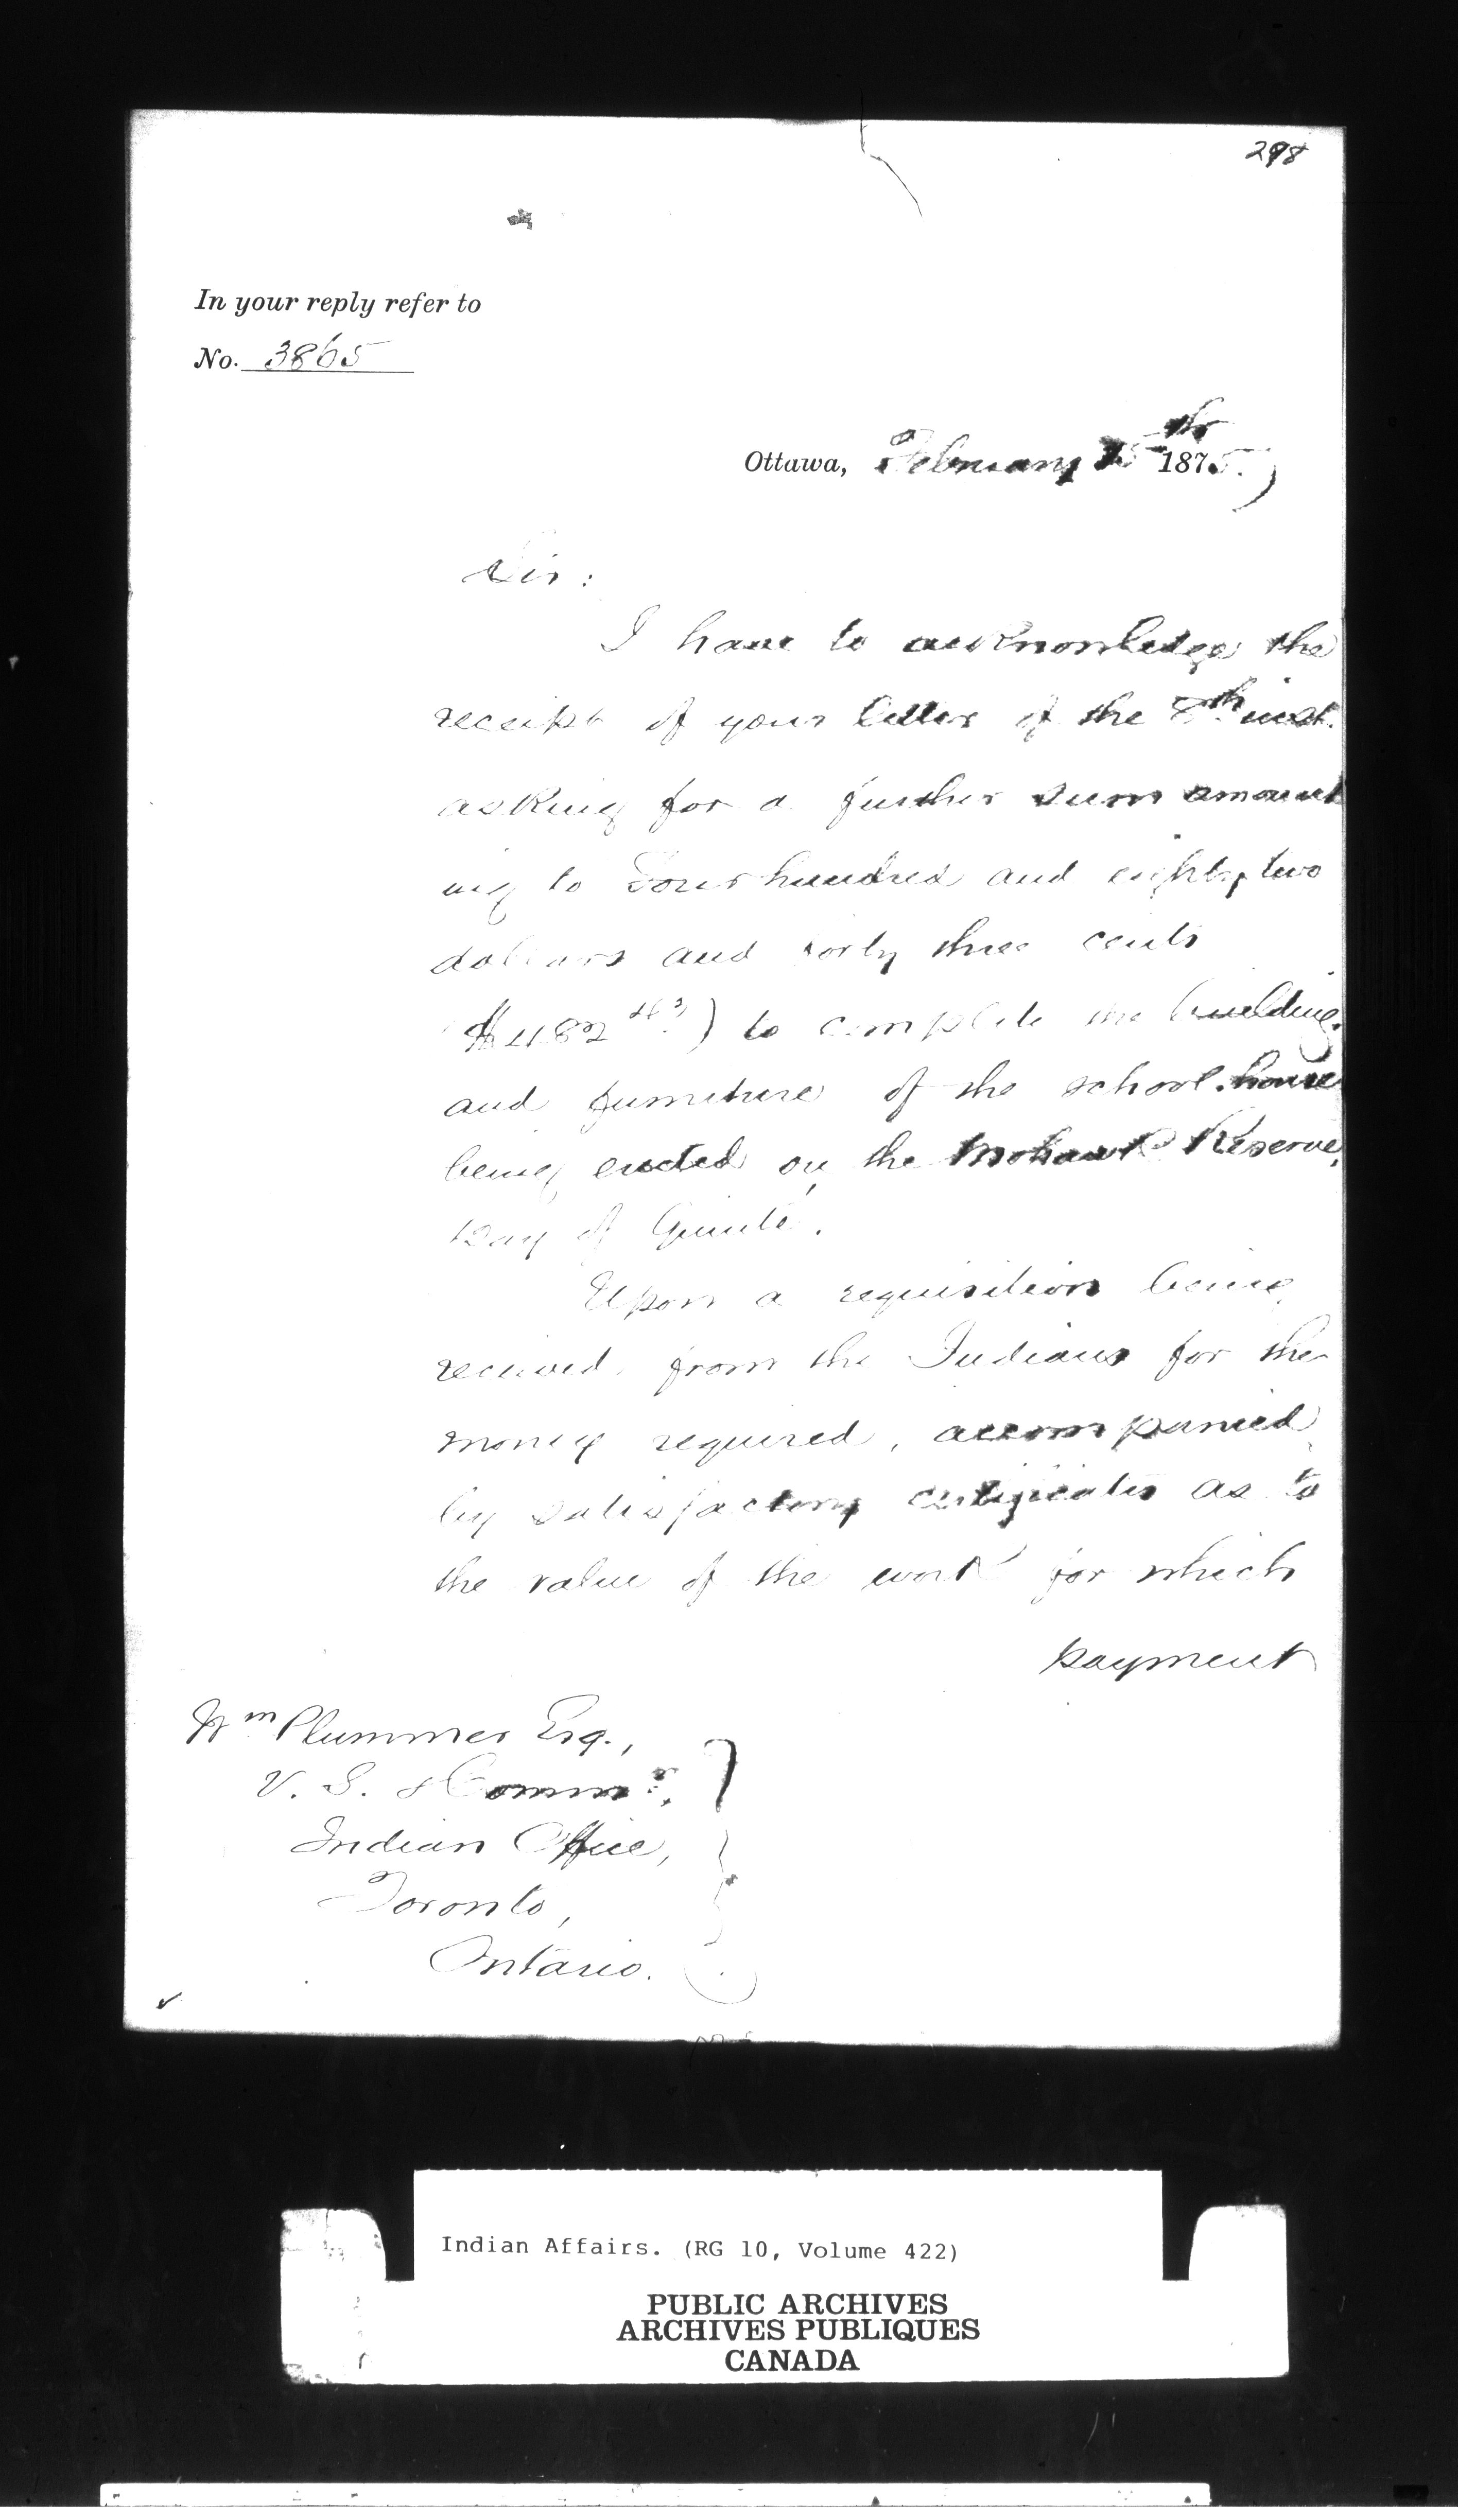 298
In your reply refer to
No. 3865
Ottawa, February 15th 1875.
Sir:
I have to acknowledge the
receipt of your letter of the 8th inst.
asking for a further sum amount
ing to Four hundred and eighty two
dollars and forty three cents
($482 43) to complete the building
and furniture of the school-house
being erected on the Mohawk Reserve,
Bay of Quinté.
Upon a requisition being
received from the Indians for the
money required, accompanied
by satisfactory certificates as to
the value of the work for which
payment
Wm Plummer Esq.,
V. S. & Commr.,
Indian Office,
Toronto,
Ontario.
Indian Affairs. (RG 10, Volume 422)
PUBLIC ARCHIVES
ARCHIVES PUBLIQUES
CANADA